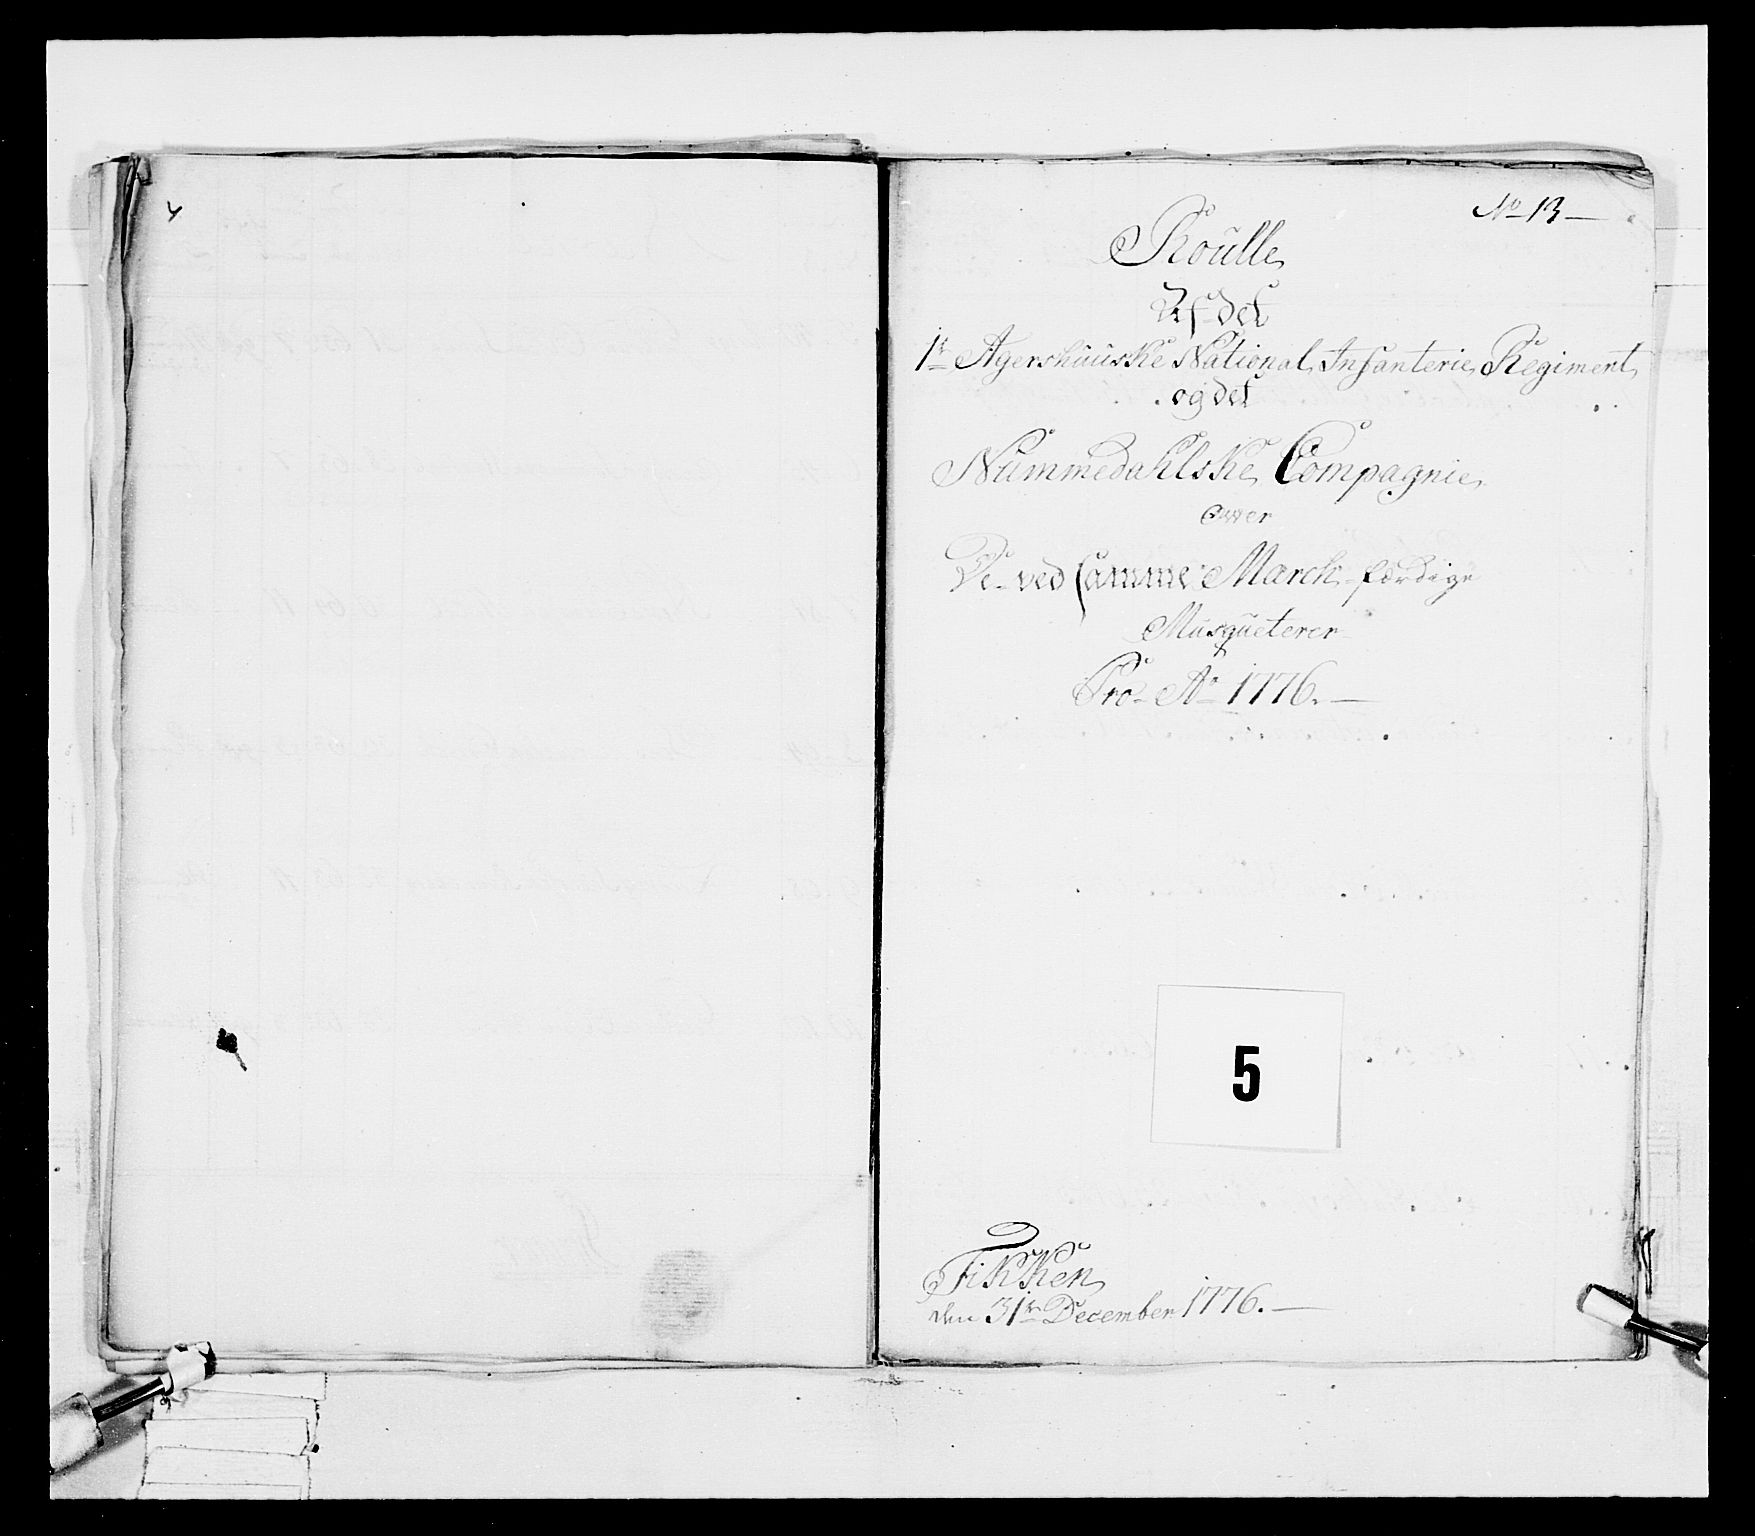 No 13
Roulle
Af det
1te Agershuuske National Infanterie Regiment
og det
Nummedahlske Compagnie
over
De ved samme March-færdige
Musqueterer
Pro Ao 1776.
5
Fikken
den 31te December 1776.